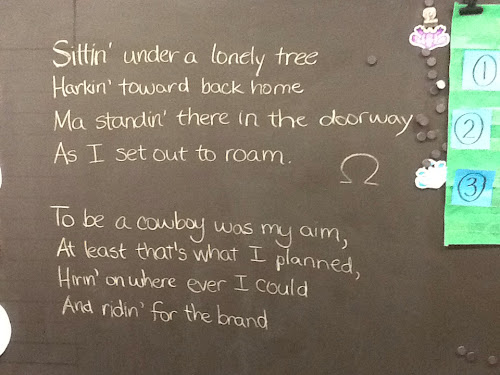 Sittin' under a lonely tree
Harkin' toward back home
Ma standin' there in the doorway
As I set out to roam.
Ω
To be a cowboy was my aim,
At least that's what I planned,
Hirin' on where ever I could
And ridin' for the brand
1
2
3